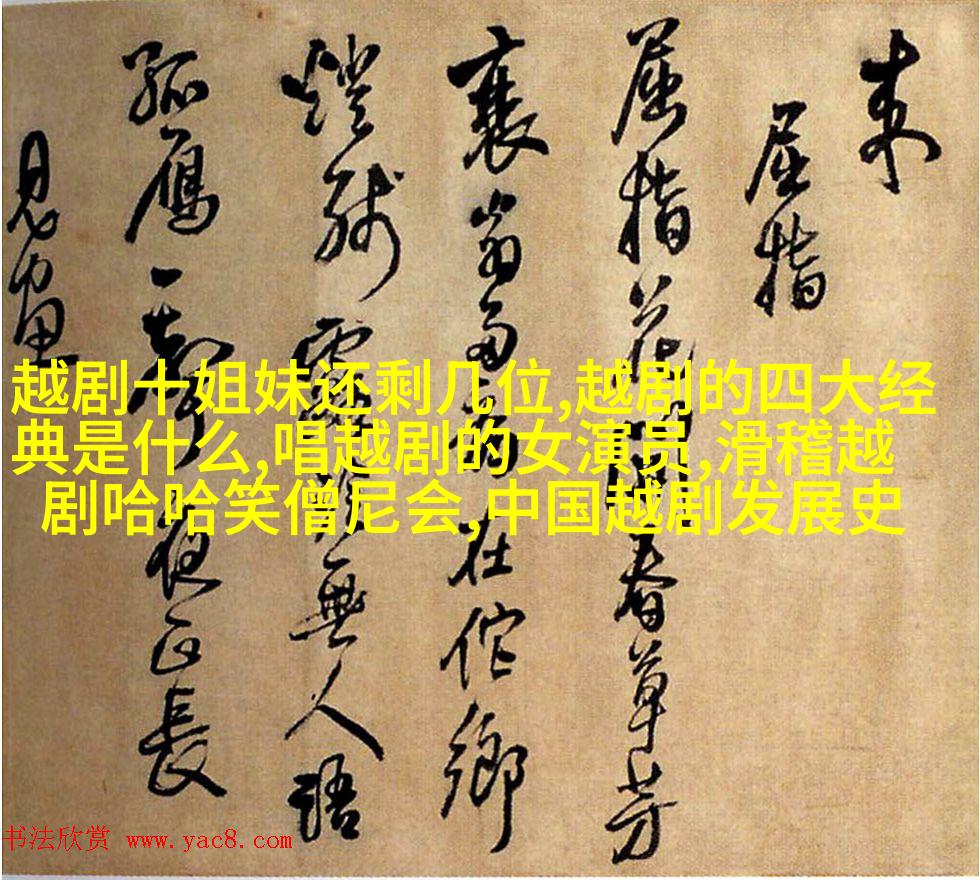 屈指
屈指花春草芳
翁多在佗鄉
燈殘無人語
孤雁一聲夜正長
越剧十姐妹还剩几位,越剧的四大经
典是什么,唱越剧的女演员,滑稽越
剧哈哈笑僧尼会,中国越剧发展史
书法欣赏 www.yac8.com